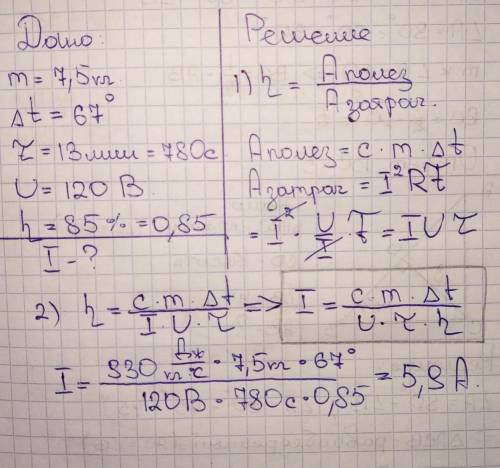 Дано:
m = 7,5 кг
Δt = 67°
τ = 13 мин = 780 с
U = 120 В
η = 85 % = 0,85
I - ?
Решение
1) η = Aполез / Aзатрач.
Aполез = c · m · Δt
Aзатрач = I²Rτ
= I² · U/I · τ = IUτ
2) η = c · m · Δt / I · U · τ => I = c · m · Δt / U · τ · η
I = 930 Дж/кг°С · 7,5 кг · 67° / 120 В · 780 с · 0,85 = 5,9 А.